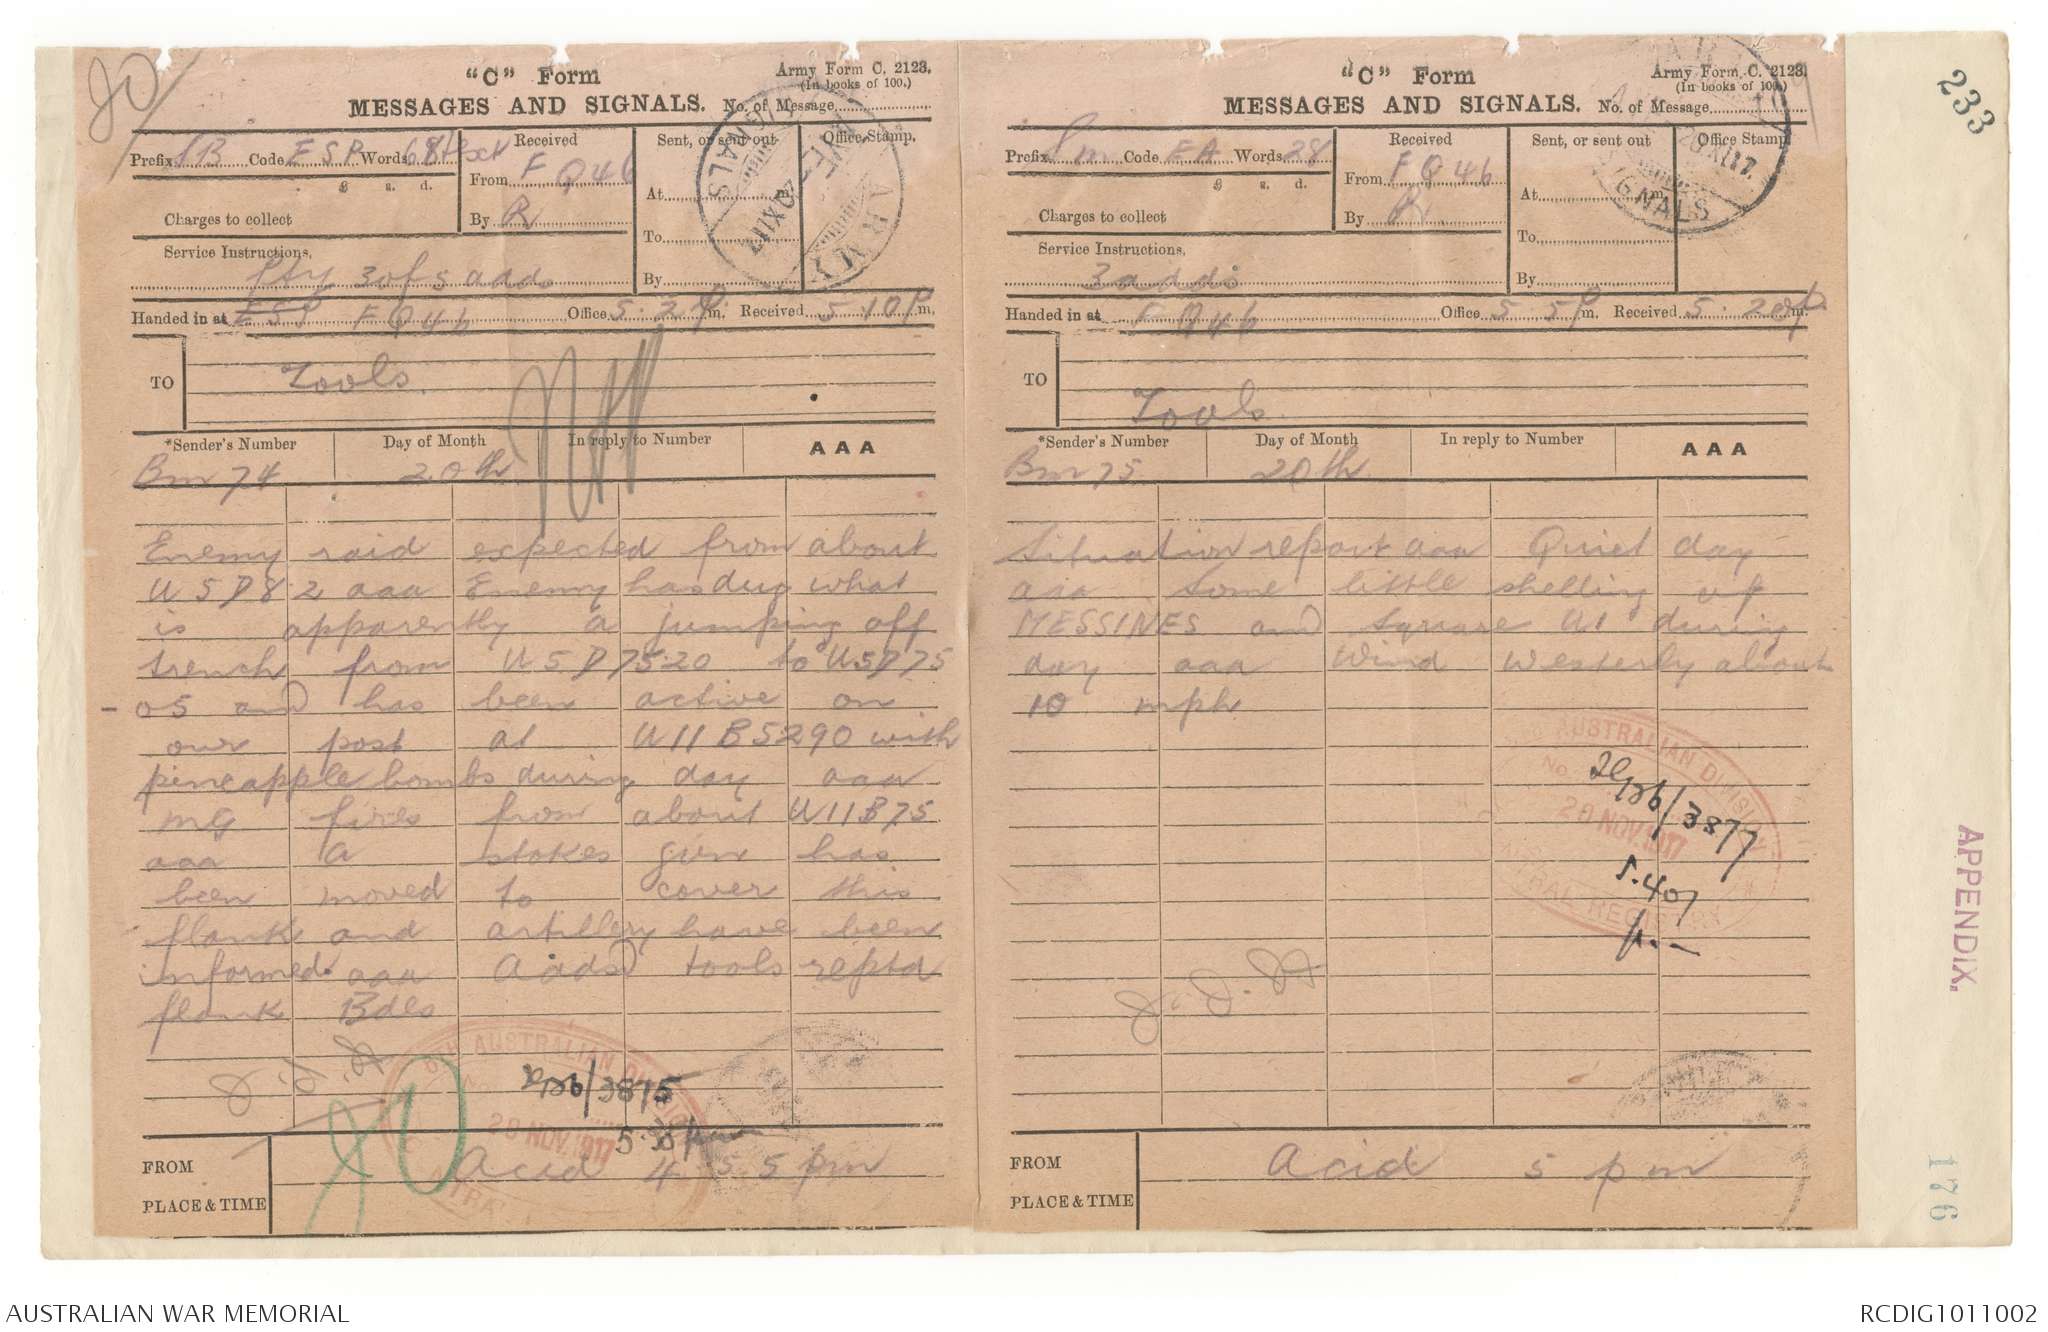 "C" Form
Army Form C. 2123.
(In books of 100.)
MESSAGES AND SIGNALS. No. of Message
Prefix SB Code ESP Words 68
Received
From FQ46
By R
Sent, or sent out
At m.
To
By
Office Stamp.
£ s. d.
Charges to collect
Service Instructions,
Pty 3 of 5 adds
Handed in at ESP FQ46 Office 5.2 p m. Received 5.10 p m.
TO Tools.
*Sender's Number Day of Month In reply to Number AAA
Bm 74 20th
Enemy raid expected from about
U5D8.2 aaa Enemy has dug what
is apparently a jumping off
trench from U5D75.20 to U5D75
- 05 and has been active on
our post at U11B5290 with
pineapple bombs during day aaa
MG fires from about U11B75
aaa A stokes gun has
been moved to cover this
flank and artillery have been
informed aaa Adds tools reptd
flank Bdes
AUSTRALIAN DIVISION
28 NOV. 1917
/3875
FROM Acid 4.55 pm
PLACE & TIME
"C" Form
Army Form C. 2123.
(In books of 100.)
MESSAGES AND SIGNALS. No. of Message
Prefix Sm Code EA Words 28
Received
From FQ46
By R
Sent, or sent out
At m.
To
By
Office Stamp.
£ s. d.
Charges to collect
Service Instructions,
3 adds
Handed in at FQ46 Office 5.5 p m. Received 5.20 p m.
TO Tools
*Sender's Number Day of Month In reply to Number AAA
Bm 75 20th
Situation report aaa Quiet day
aaa Some little shelling of
MESSINES and square U1 during
day aaa Wind Westerly about
10 mph
AUSTRALIAN DIVISION
No.
20 NOV. 1917
CENTRAL REGISTRY
/3877
5.40
FROM Acid 5 pm
PLACE & TIME
233
APPENDIX.
176
AUSTRALIAN WAR MEMORIAL
RCDIG1011002